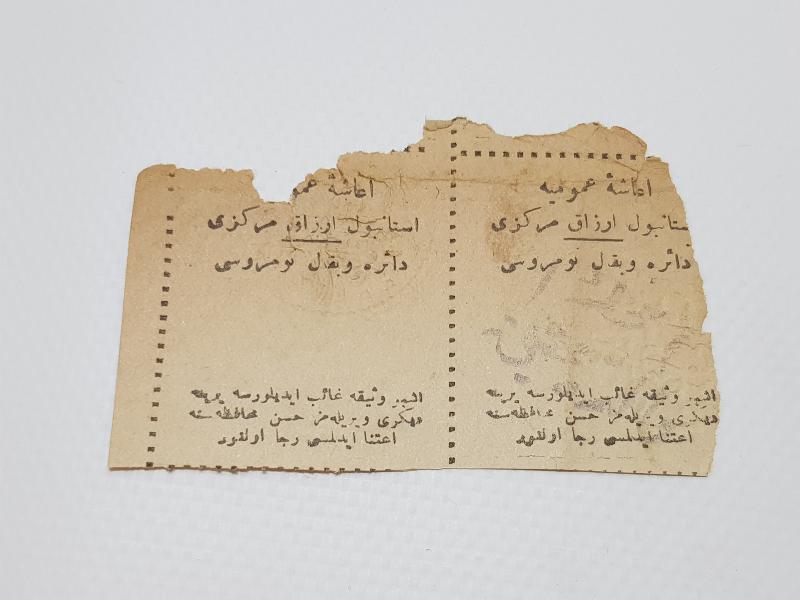 اعاشهٔ عمومیه
ستانبول ارزاق مرکزی
دائره و بقال نومروسی
اشبو وثیقه غائب ایدیلورسه یرینه
دیكری ویریله‌مز حسن محافظه‌سنه
اعتنا ایدلمسی رجا اولنور
اعاشهٔ عمو
استانبول ارزاق مرکزی
دائره و بقال نومروسی
اشبو وثیقه غائب ایدیلورسه یرینه
دیكری ویریله‌مز حسن محافظه‌سنه
اعتنا ایدلمسی رجا اولنور